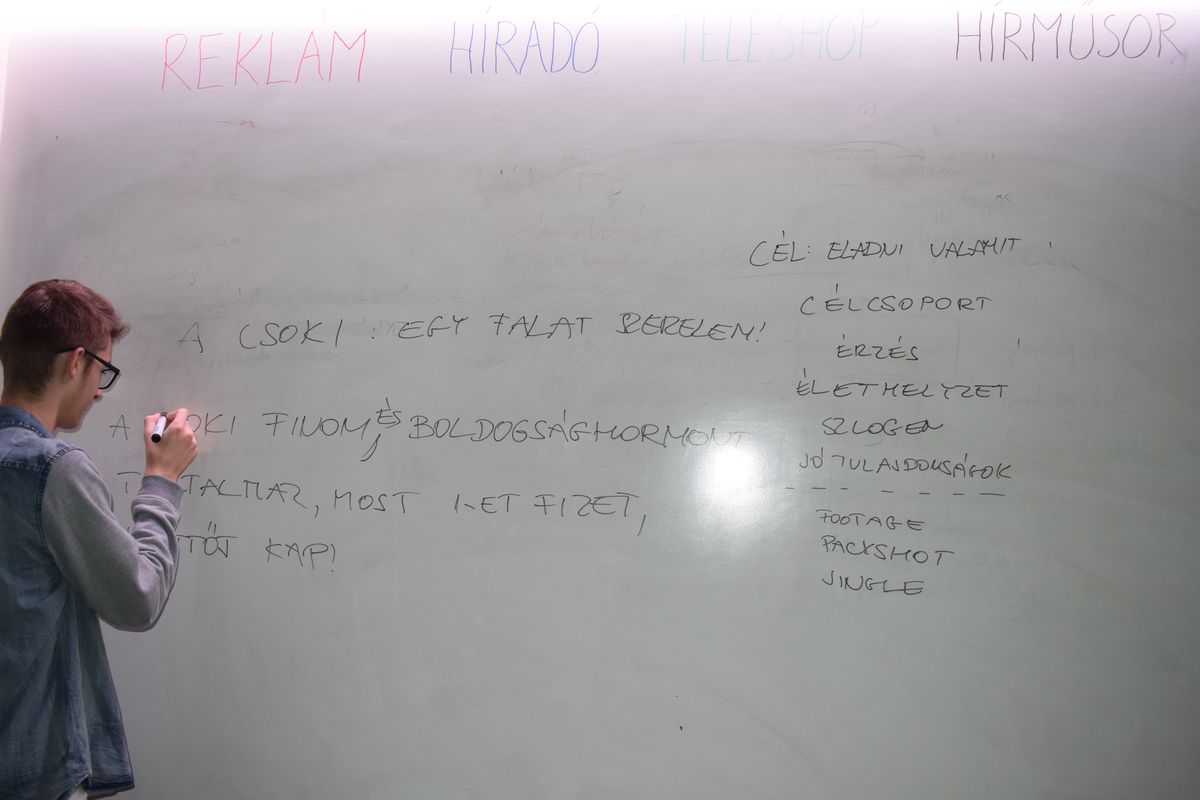 REKLÁM HÍRADÓ TELESHOP HÍRMŰSOR
A CSOKI: EGY FALAT SZERELEM!
A OKI FINOM, ÉS BOLDOGSÁGHORMONT
T TALMAZ, MOST 1-ET FIZET,
TŐT KAP!
CÉL: ELADNI VALAMIT
CÉLCSOPORT
ÉRZÉS
ÉLETHELYZET
SZLOGEN
JÓ TULAJDONSÁGOK
FOOTAGE
PACKSHOT
JINGLE